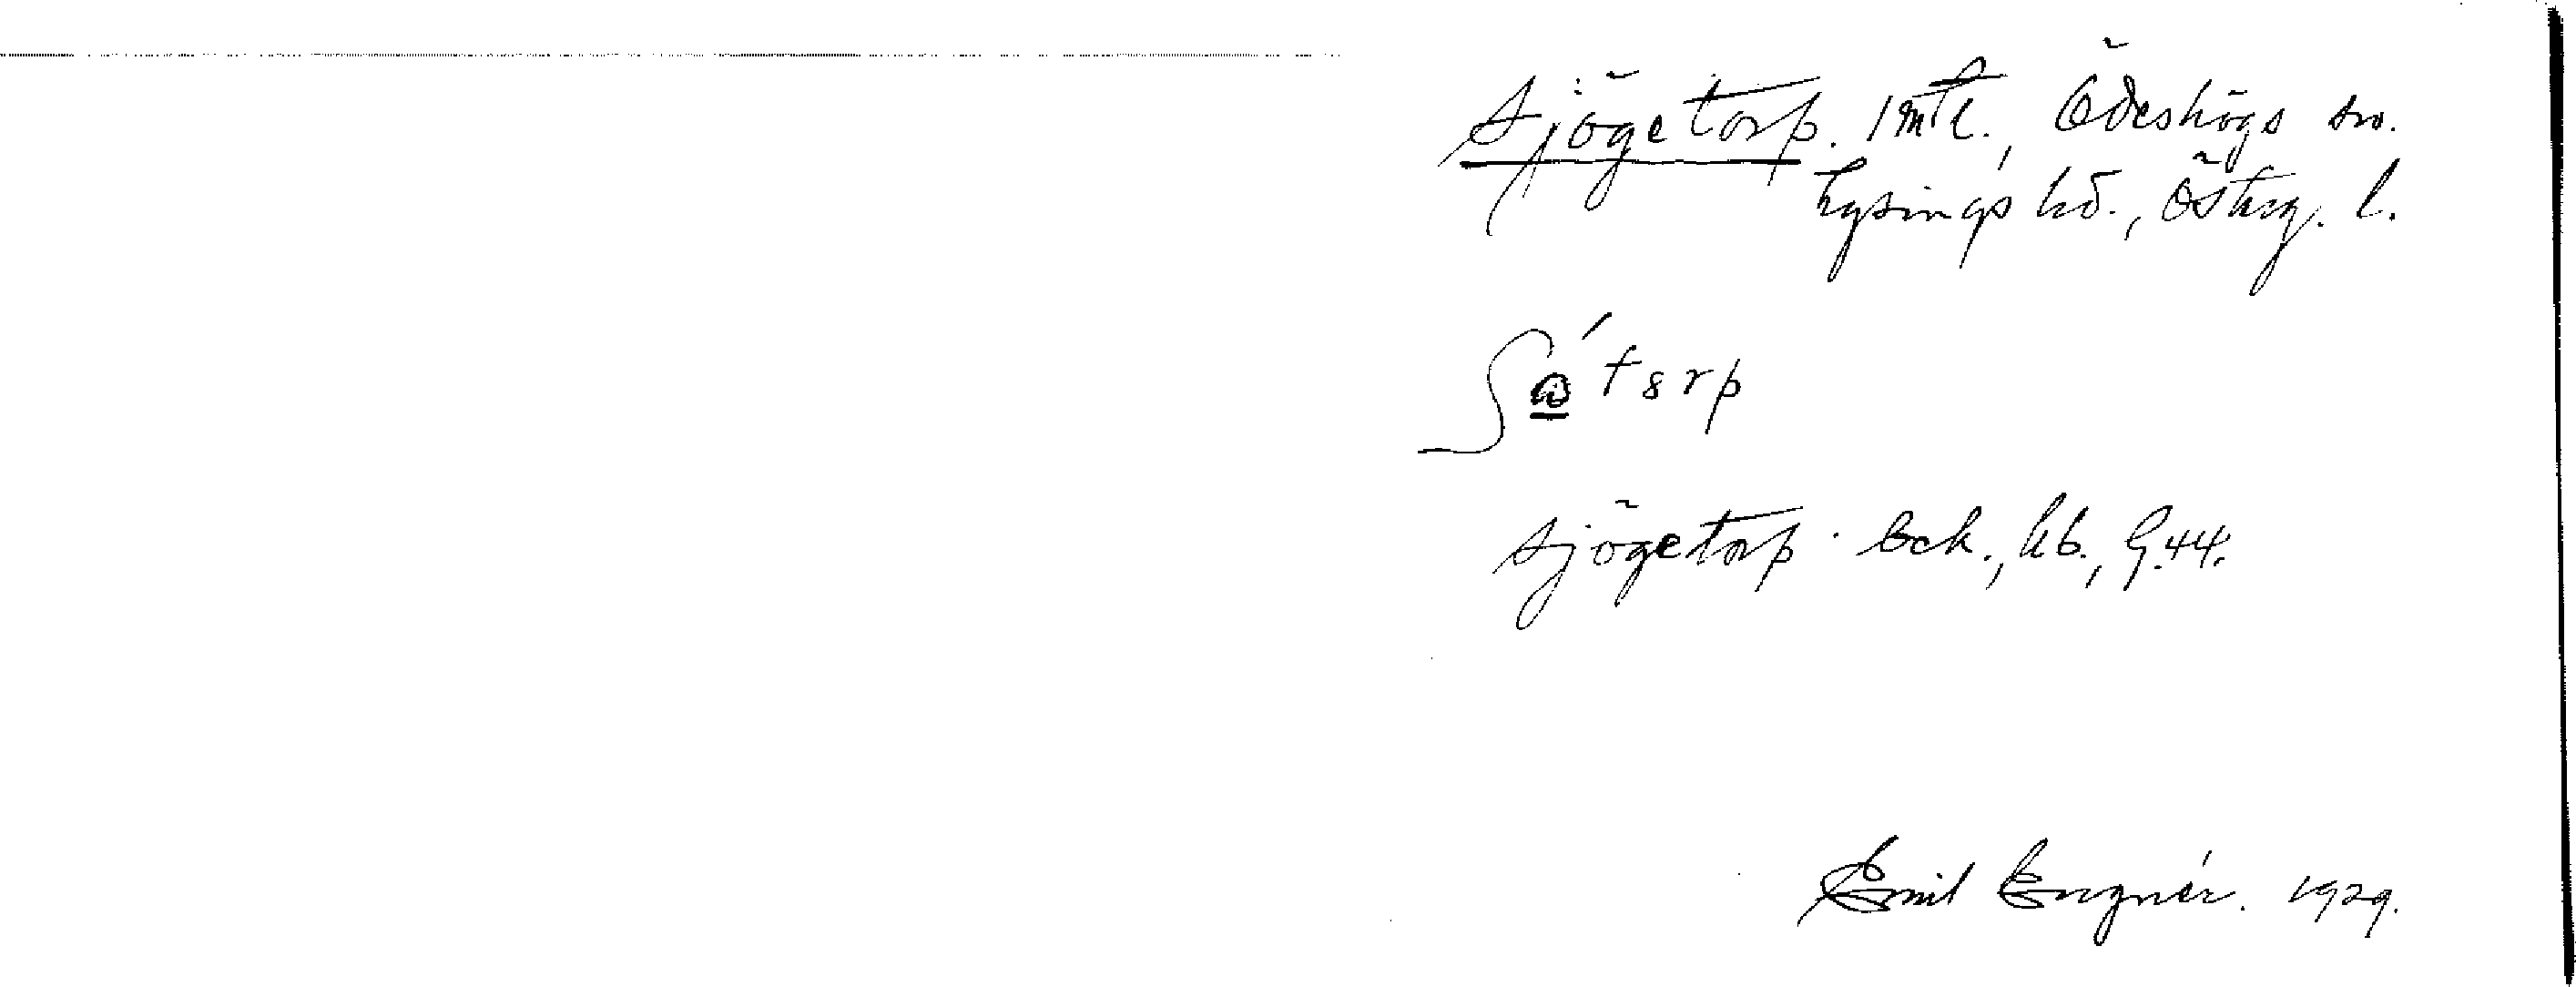 Sjögetorp. 1 mtl., Ödeshögs sn.
Lysings hd.,Österg. l.
Sjögetorp. Eck., hb., G.44.
Emil Engnér. 1929.